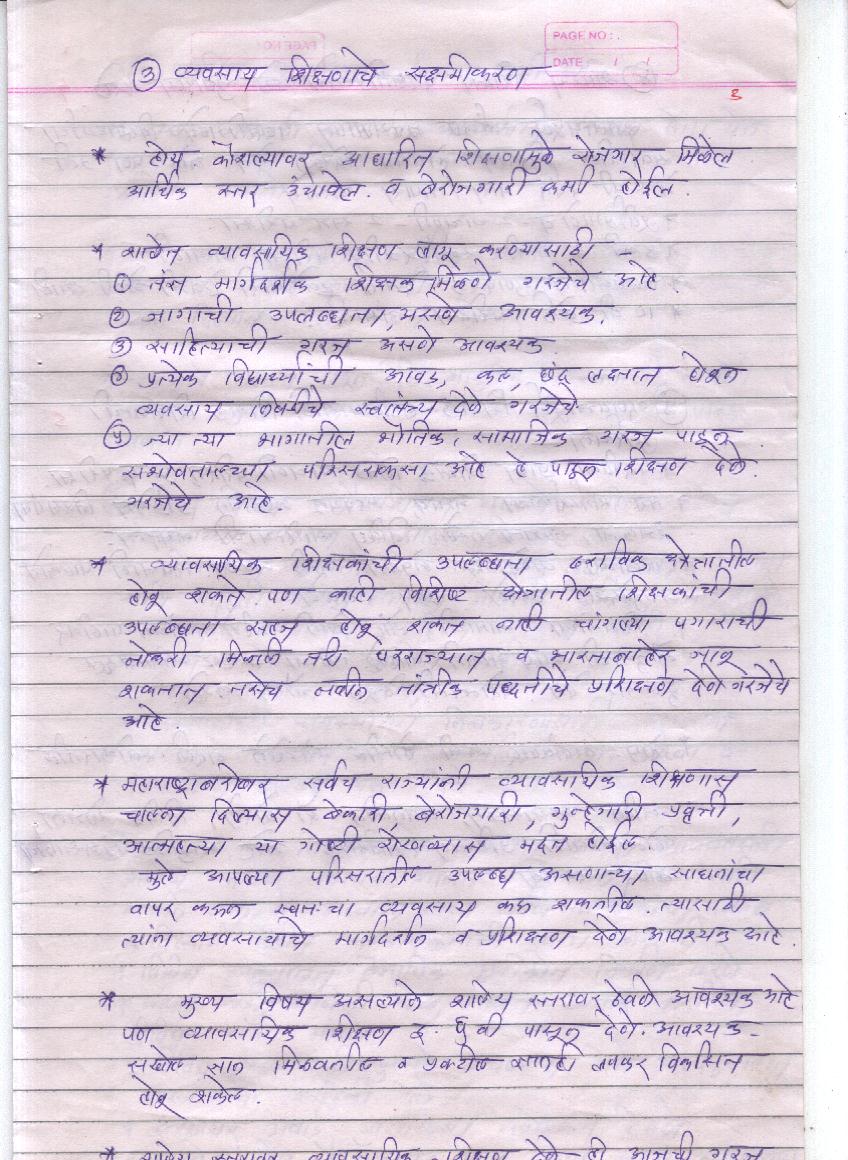 PAGE NO :
DATE : / /
③ व्यवसाय शिक्षणाचे सक्षमीकरण
3
* होय कौशल्यावर आधारित शिक्षणामुळे रोजगार मिळेल
आर्थिक स्तर उंचावेल. व बेरोजगारी कमी होईल.
* शाळेत व्यावसायिक शिक्षण लागू करण्यासाठी –
① तंत्र मार्गदर्शक शिक्षक मिळणे गरजेचे आहे.
② जागाची उपलब्धता, असणे आवश्यक.
③ साहित्याची गरज असणे आवश्यक
प्रत्येक विद्यार्थ्यांची आवड, कल, छंद लक्षात घेऊन
व्यवसाय निवडीचे स्वातंत्र्य देणे गरजेचे
⑤ ज्या त्या भागातील भौतिक, सामाजिक गरज पाहून
सभोवतालच्या परिसर कसा आहे हे पाहून शिक्षण देणे.
गरजेचे आहे.
* व्यावसायिक शिक्षकांची उपलब्धता ठराविक क्षेत्रातील
होवू शकते. पण काही विशिष्ट क्षेत्रातील शिक्षकांची
उपलब्धता सहज होवू शकत नाही चांगल्या पगाराची
नोकरी मिळाली तरी परराज्यात व भारताबाहेर जावू
शकतात तसेच नवीन तांत्रीक पध्दतीचे प्रशिक्षण देणे गरजेचे
आहे.
* महाराष्ट्राबरोबर सर्वच राज्यांनी व्यावसायिक शिक्षणास
चालना दिल्यास बेकारी, बेरोजगारी, गुन्हेगारी प्रवृत्ती,
आत्महत्या या गोष्टी रोखण्यास मदत होईल.
मुले आपल्या परिसरातील उपलब्ध असणाऱ्या साधनांचा
वापर करून स्वतःचा व्यवसाय करू शकतील. त्यासाठी
त्यांना व्यवसायाचे मार्गदर्शन व प्रशिक्षण देणे आवश्यक आहे.
* मुख्य विषय असल्याने शालेय स्तरावर ठेवणे आवश्यक आहे
पण व्यावसायिक शिक्षण इ. ५ वी पासून देणे. आवश्यक-
सखोल ज्ञान मिळवतील व लवकर विकसित
होवू शकेल.
* शालेय स्तरावर व्यावसायिक शिक्षण देणे ही आजची गरज